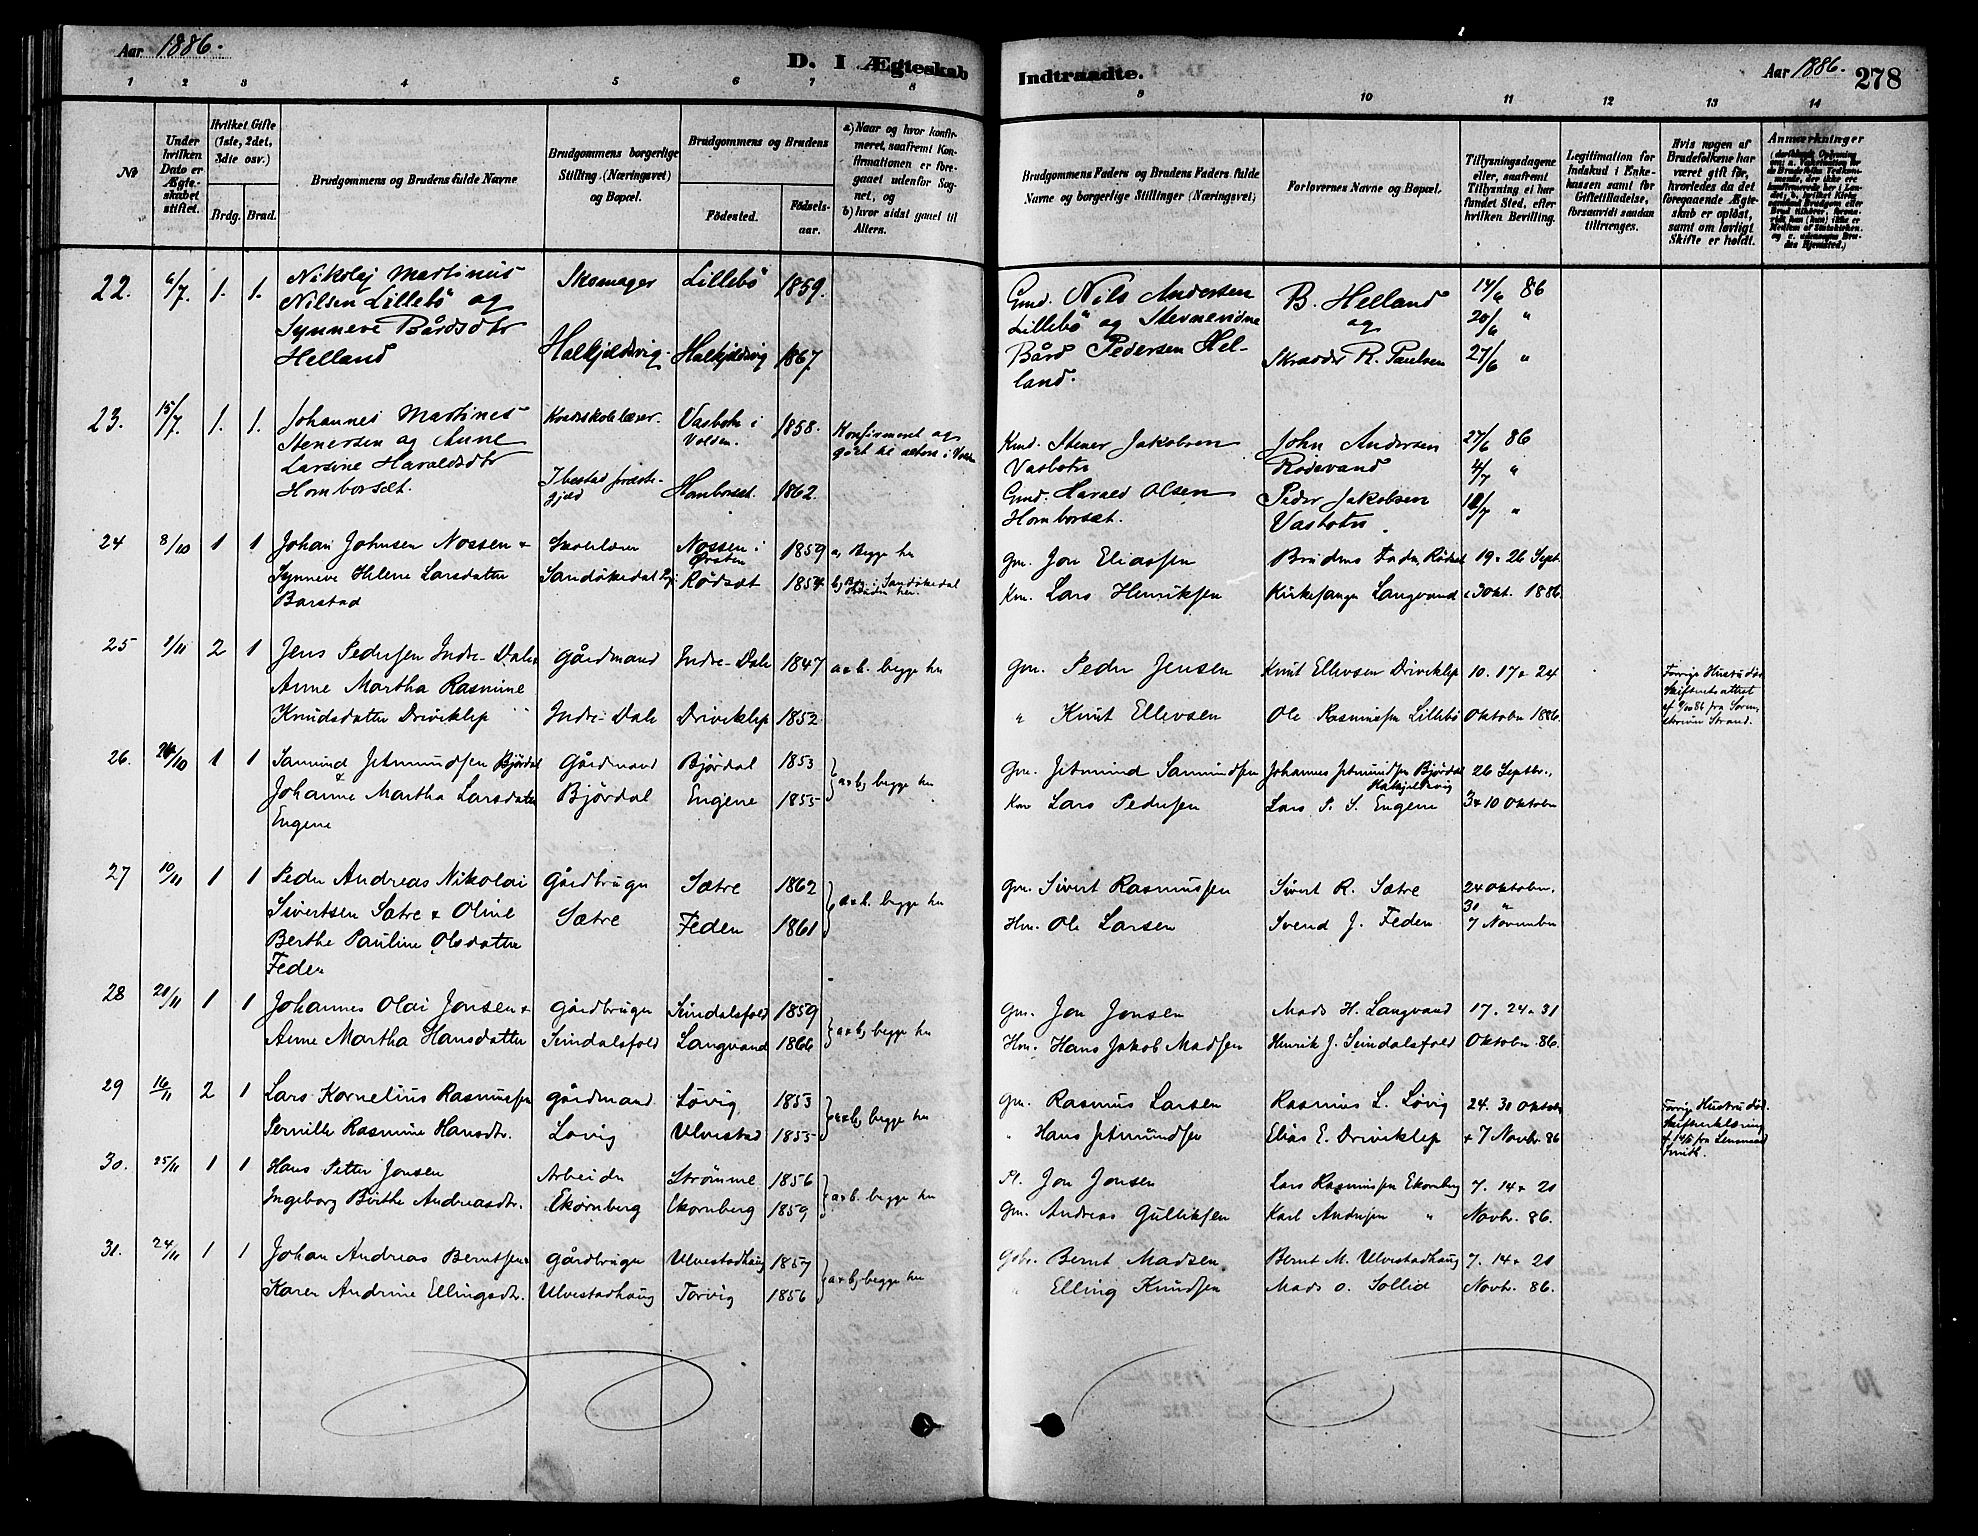 Aar 1886.
D. I Ægteskab
Indtraadte.
Aar 1886.
278
1 2 3 4 5 6 7 8
9 10 11 12 13 14
No
Under hvilken Dato er Ægteskabet stiftet.
Hvilket Gifte (1ste, 2det, 3die osv.)
Brdg. Brud.
Brudgommens og Brudens fulde Navne
Brudgommens borgerlige Stilling (Næringsvei) og Bopæl.
Brudgommens og Brudens
Fødested.
Fødselsaar.
a) Naar og hvor konfirmeret, saafremt Konfirmationen er foregaaet udenfor Sognet, og
b) hvor sidst gaaet til Alters.
Brudgommens Faders og Brudens Faders fulde Navne og borgerlige Stillinger (Næringsvei)
Forlovernes Navne og Bopæl.
Tillysningsdagene eller, saafremt Tillysning ei har fundet Sted, efter hvilken Bevilling.
Legitimation for Indskud i Enkekassen samt for Giftetilladelse, forsaavidt saadan tiltrænges.
Hvis nogen af Brudefolkene har været gift før, hvorledes da det foregaaende Ægteskab er opløst, samt om lovligt Skifte er holdt.
Anmærkninger
22. 6/7. 1. 1. Nikolej Martinus Skomager Lillebö 1859.
Nilsen Lillebö og
Synneve Bårdsdtr
Helland Halkjeldsvig Halkjeldsvig 1867.
Gmd. Nils Andersen B. Helland 14/6 86
Lillebö og Stevnevidne og 20/6 "
Bård Pedersen Hel- Skrædder R. Paulsen 27/6 "
land.
23. 15/7. 1. 1. Johannes Martines Kredsskolelærer. Vasbotn i 1858. Konfirmeret og
Stenersen og Anne Volden. gået til alters i Volden
Larsine Haraldsdtr
Hornborsæt. Ibestad præste- Hornborsæt. 1862.
gjeld
Kmd. Stener Jakobsen John Andersen 27/6 86
Vasbotn Rödsvand 4/7 "
Gmd. Harald Olsen Peder Jakobsen 11/7 "
Hornborsæt. Vasbotn.
24 8/10 1 1 Johan Johnsen Nossen & Skolelærer Nossen i Ørsten 1859 a, Begge her
Synneve Helene Larsdatter Sandökedal Rödsæt 1854 b) Brg. i Sandökedal
Barstad Bruden her.
Gm. Jon Eliassen Brudens Fader, Rödset 19. 26 Sept.
Km. Lars Henriksen Kirkesanger Langvand & 3 Okt. 1886.
25 1/11 2 1 Jens Pedersen Indre-Dale & Gårdmand Indre-Dale 1847 a & b. begge her
Anne Martha Rasmine
Knudsdatter Driveklep Indre-Dale Driveklep 1852
Gm. Peder Jensen Knut Ellevsen Driveklep 10. 17 & 24 Forrige Hustru død.
" Knut Ellevsen Ole Rasmussen Lillebö Oktober 1886. Skifteretsattest af 9/10 86 fra Sorenskriver Strand.
26. 26/10 1 1 Samund JAmundsen Bjørdal Gårdmand Bjørdal 1853 a & b) begge her
&
Johanne Martha Larsdatter Björdal Engene 1855
Engene
Gm. JAmund Samundsen Johannes JAmundsen Bjørdal 26 Septbr.,
Halkjeldsvig
Km Lars Pedersen Lars P. S. Engene 3 & 10 Oktober
27 10/11 1 1 Peder Andreas Nikolai Gårdbruger Sætre 1862 a & b. begge her
Sivertsen Sætre & Oline Sætre Feden 1861
Berthe Pauline Olsdatter
Feden
Gm. Sivert Rasmussen Sivert R. Sætre 24 Oktober.
31 "
Hm. Ole Larsen Svend J. Feden 7 November
28 21/11 1 1 Johannes Olai Jonsen & Gårdbruger Sundalsfold 1859 a & b) begge her
Anne Martha Hansdatter Sundalsfold Langvand 1866
Gm. Jon Jonsen Mads H. Langvand 17. 24 & 31
Hm. Hans Jakob Madsen Henrik J. Sundalsfold Oktober 86.
29 16/11 2 1 Lars Kornelius Rasmussen Gårdmand Løvig 1853 a & b) begge her
Pernille Rasmine Hansdtr. Lövig Ulvestad 1855
Gm. Rasmus Larsen Rasmus L. Lövig 24. 31 Oktober Forrige Hustru død.
" Hans JAmundsen Elias E. Driveklep & 7 Novbr. 86 Skifteerklæring af 14/8 fra Lensmand Smith.
30. 25/11 1 1 Hans Petter Jonsen Arbeider Strömme 1856 a & b. begge her
Ingeborg Birthe Andreasdtr. Ekornberg Ekornberg 1859
Pl. Jon Jonsen Lars Rasmussen Ekornberg 7. 14 & 21
Gm. Andreas Gulliksen Karl Andresen " Novbr. 86.
31. 24/11 1 1 Johan Andreas Berntsen & Gårdbruger Ulvestadhaug 1857 a & b) begge her
Karen Andrine Ellingsdtr. Ulvestadhaug Torvig 1856
Gbr. Bernt Madsen Bernt M. Ulvestadhaug 7. 14 & 21
" Elling Knudsen Mads O. Sollid Novbr. 86.